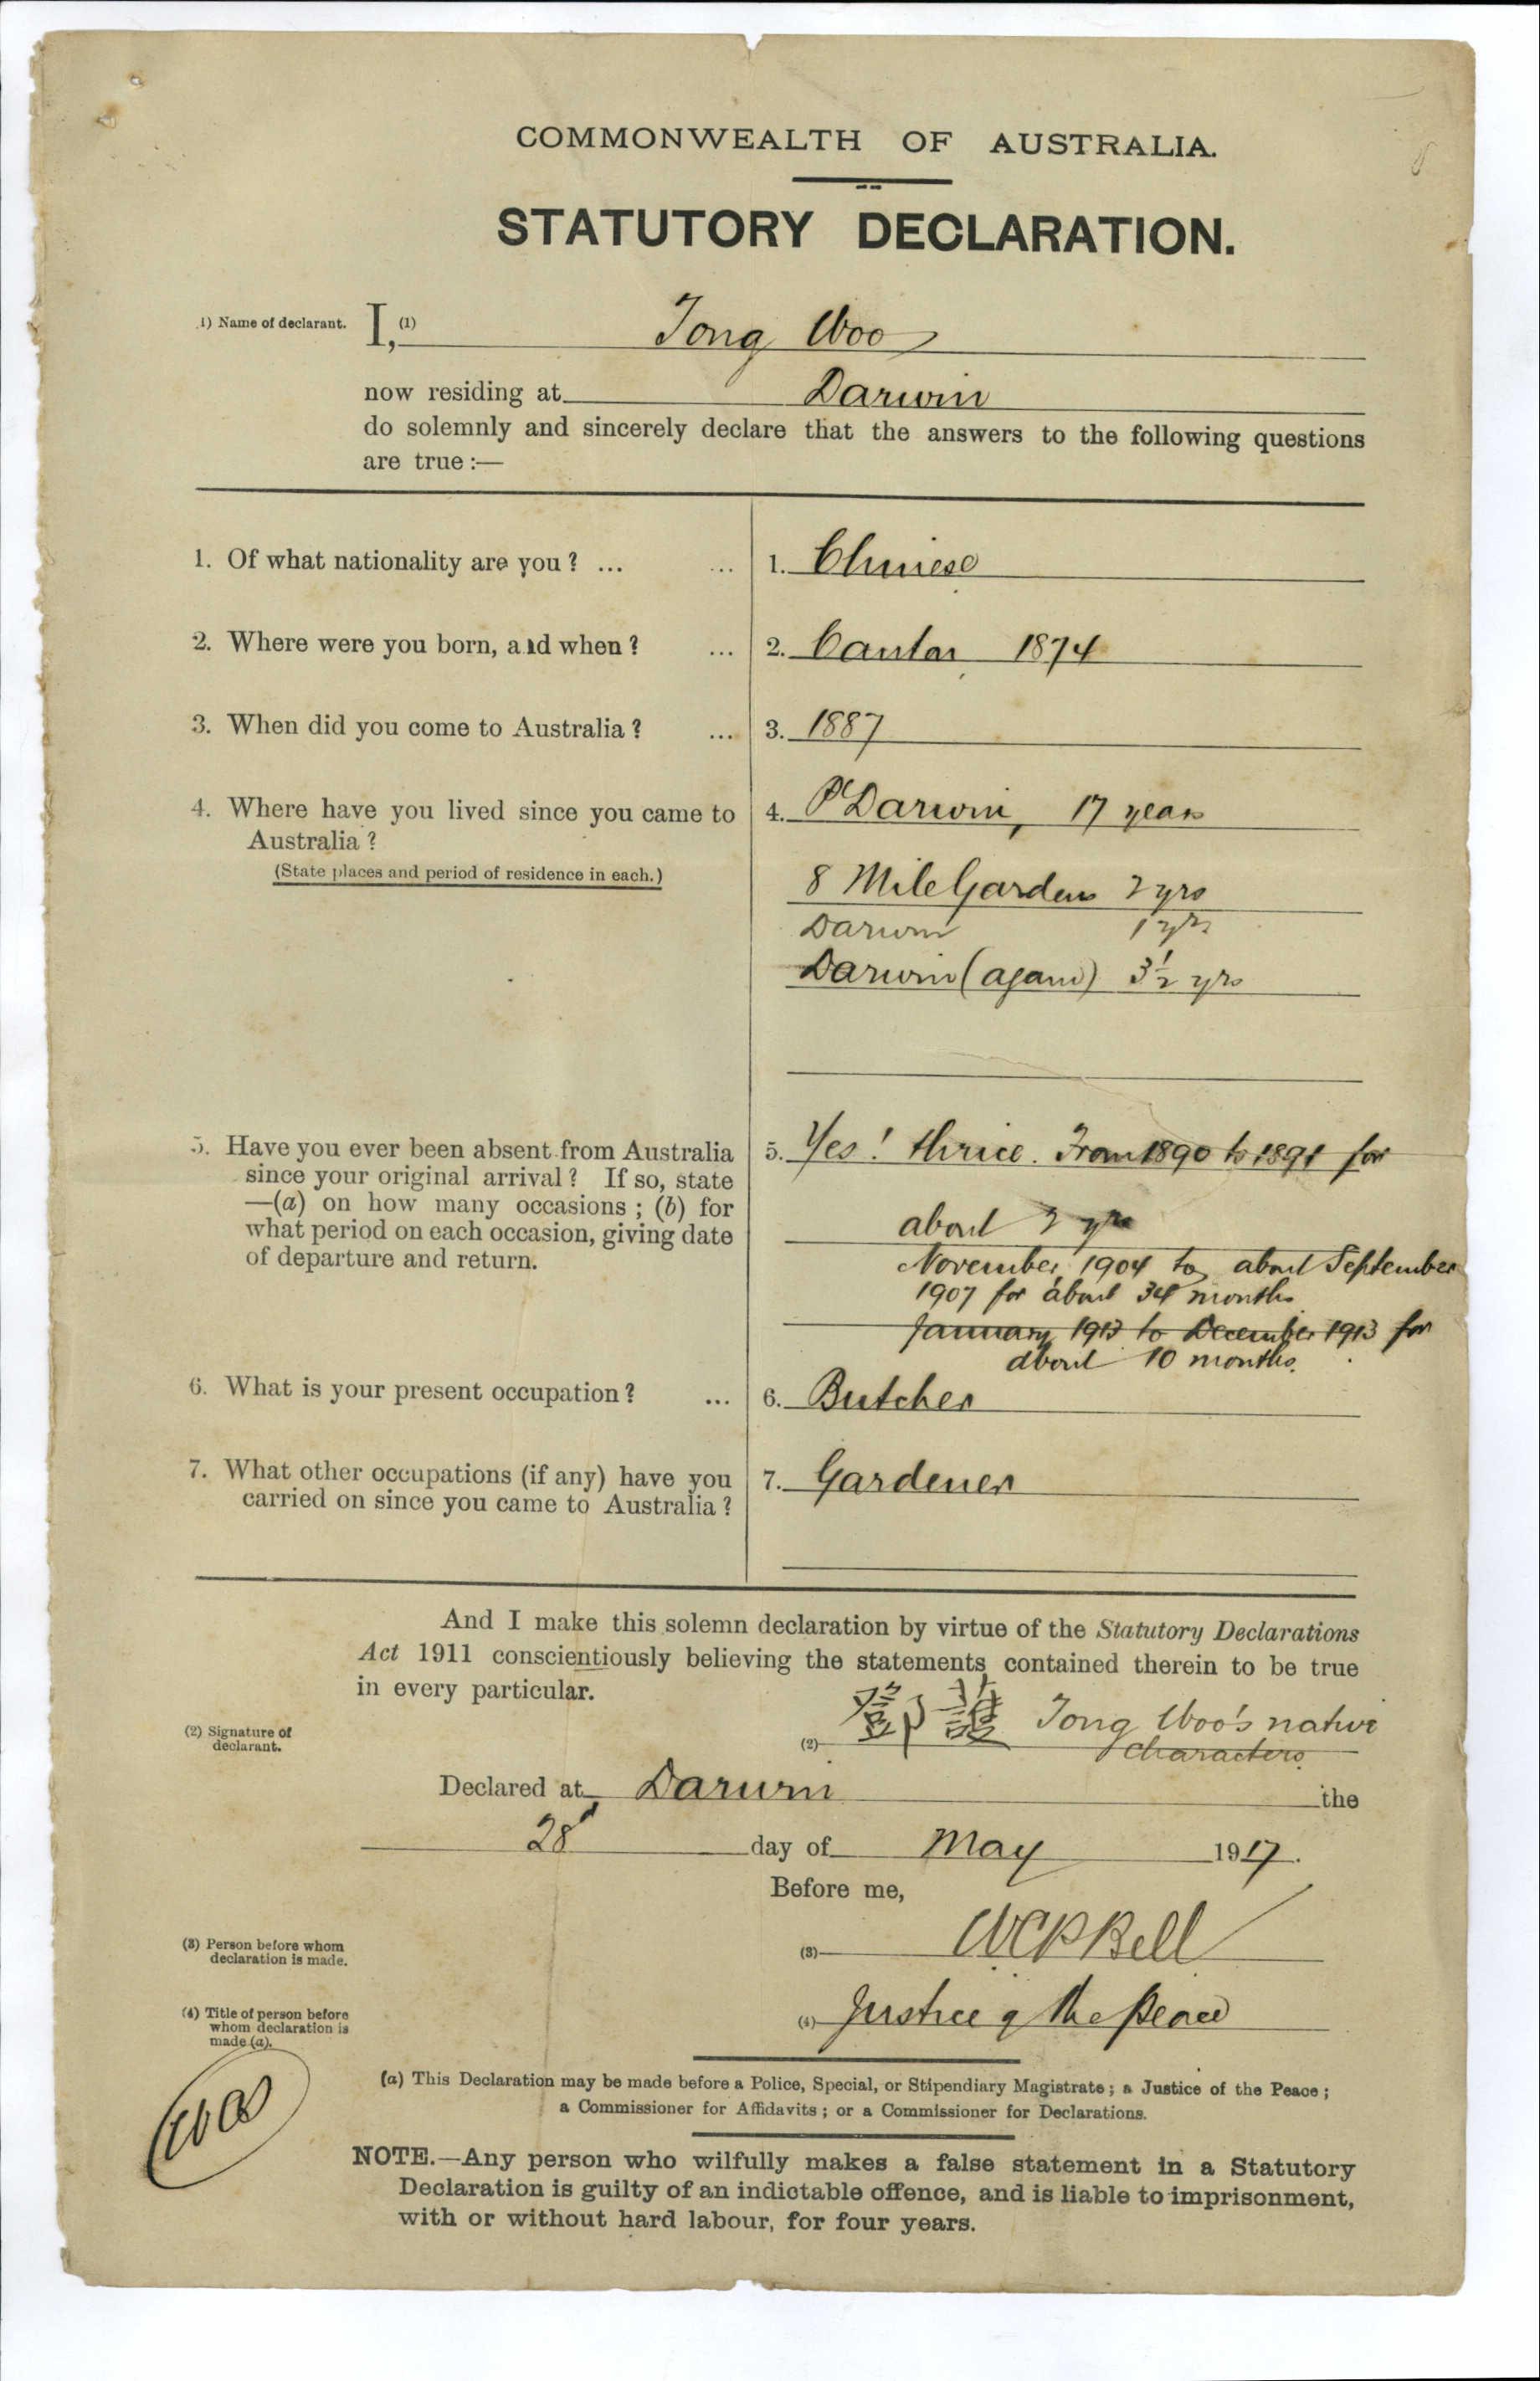 COMMONWEALTH OF AUSTRALIA.
STATUTORY DECLARATION.
(1) Name of declarant. I, (1) Tong Woo
now residing at Darwin
do solemnly and sincerely declare that the answers to the following questions
are true :—
1. Of what nationality are you ? ... ... 1. Chinese
2. Where were you born, and when ? ... 2. Canton 1874
3. When did you come to Australia ? ... 3. 1887
4. Where have you lived since you came to 4. Pt Darwin, 17 years
Australia ?
(State places and period of residence in each.)
8 Mile Gardens 2 yrs
Darwin 1 yr
Darwin (again) 3½ yrs
5. Have you ever been absent from Australia 5. Yes! thrice. From 1890 to 1891 for
since your original arrival ? If so, state
—(a) on how many occasions ; (b) for
what period on each occasion, giving date
of departure and return.
about 2 yrs
November 1904 to about September
1907 for about 34 months
January 1913 to December 1913 for
about 10 months.
6. What is your present occupation ? ... 6. Butcher
7. What other occupations (if any) have you 7. Gardener
carried on since you came to Australia ?
And I make this solemn declaration by virtue of the Statutory Declarations
Act 1911 conscientiously believing the statements contained therein to be true
in every particular.
(2) Signature of
declarant.
(2) 鄧護 Tong Woo's native
characters.
Declared at Darwin the
28 day of May 1917.
Before me,
(3) Person before whom
declaration is made.
(3) WCPBell
(4) Title of person before
whom declaration is
made (a).
(4) Justice of the Peace
(a) This Declaration may be made before a Police, Special, or Stipendiary Magistrate ; a Justice of the Peace ;
a Commissioner for Affidavits ; or a Commissioner for Declarations.
NOTE.—Any person who wilfully makes a false statement in a Statutory
Declaration is guilty of an indictable offence, and is liable to imprisonment,
with or without hard labour, for four years.